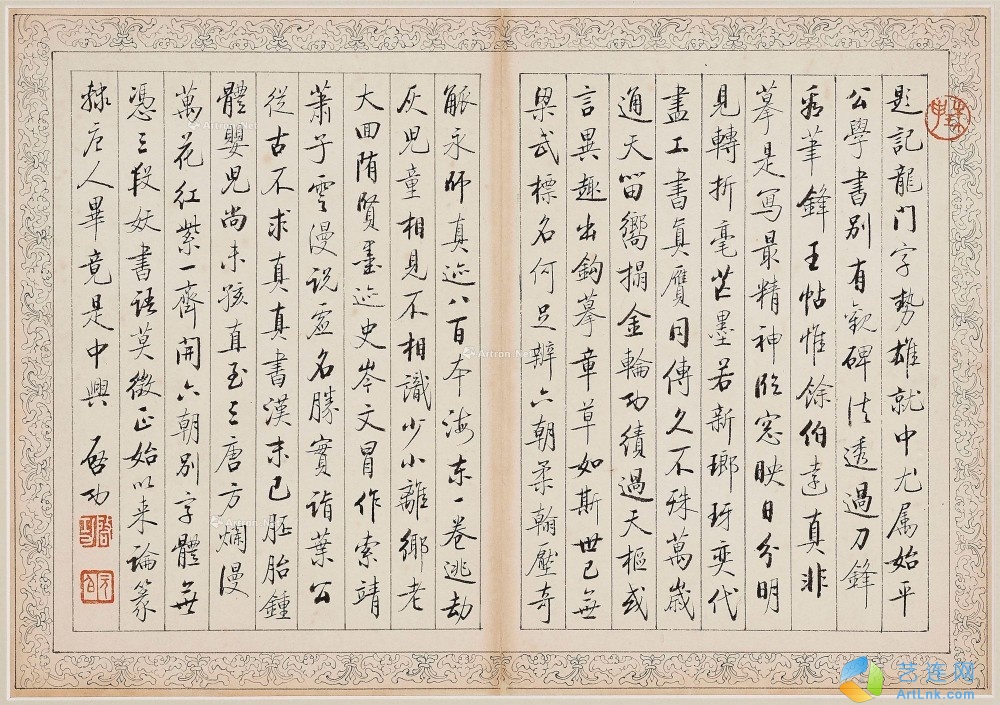 題記龍門字勢雄就中尤屬始平
公學書別有觀碑法透過刀鋒
看筆鋒王帖惟餘伯遠真非
摹是寫最精神臨窓映日分明
見轉折毫芒墨若新瑯玡奕代
盡工書真贋同傳久不殊萬歲
通天留嚮搨金輪功績過天樞或
言異趣出鈎摹章草如斯世已無
梁武標名何足辨六朝柔翰壓奇
觚永師真迹八百本海東一卷逃劫
灰兒童相見不相識少小離鄉老
大回隋賢墨迹史岑文冒作索靖
蕭子雲漫說虛名勝實詣葉公
從古不求真真書漢末已胚胎鍾
體嬰兒尚未孩直至三唐方爛漫
萬花紅紫一齊開六朝別字體無
憑三段妖書語莫徵正始以來論篆
隸唐人畢竟是中興 啓功
啓功
元白
Artron.Net
Artron.Net
Artron.Net
Artron.Net
艺连网
ArtLnk.com